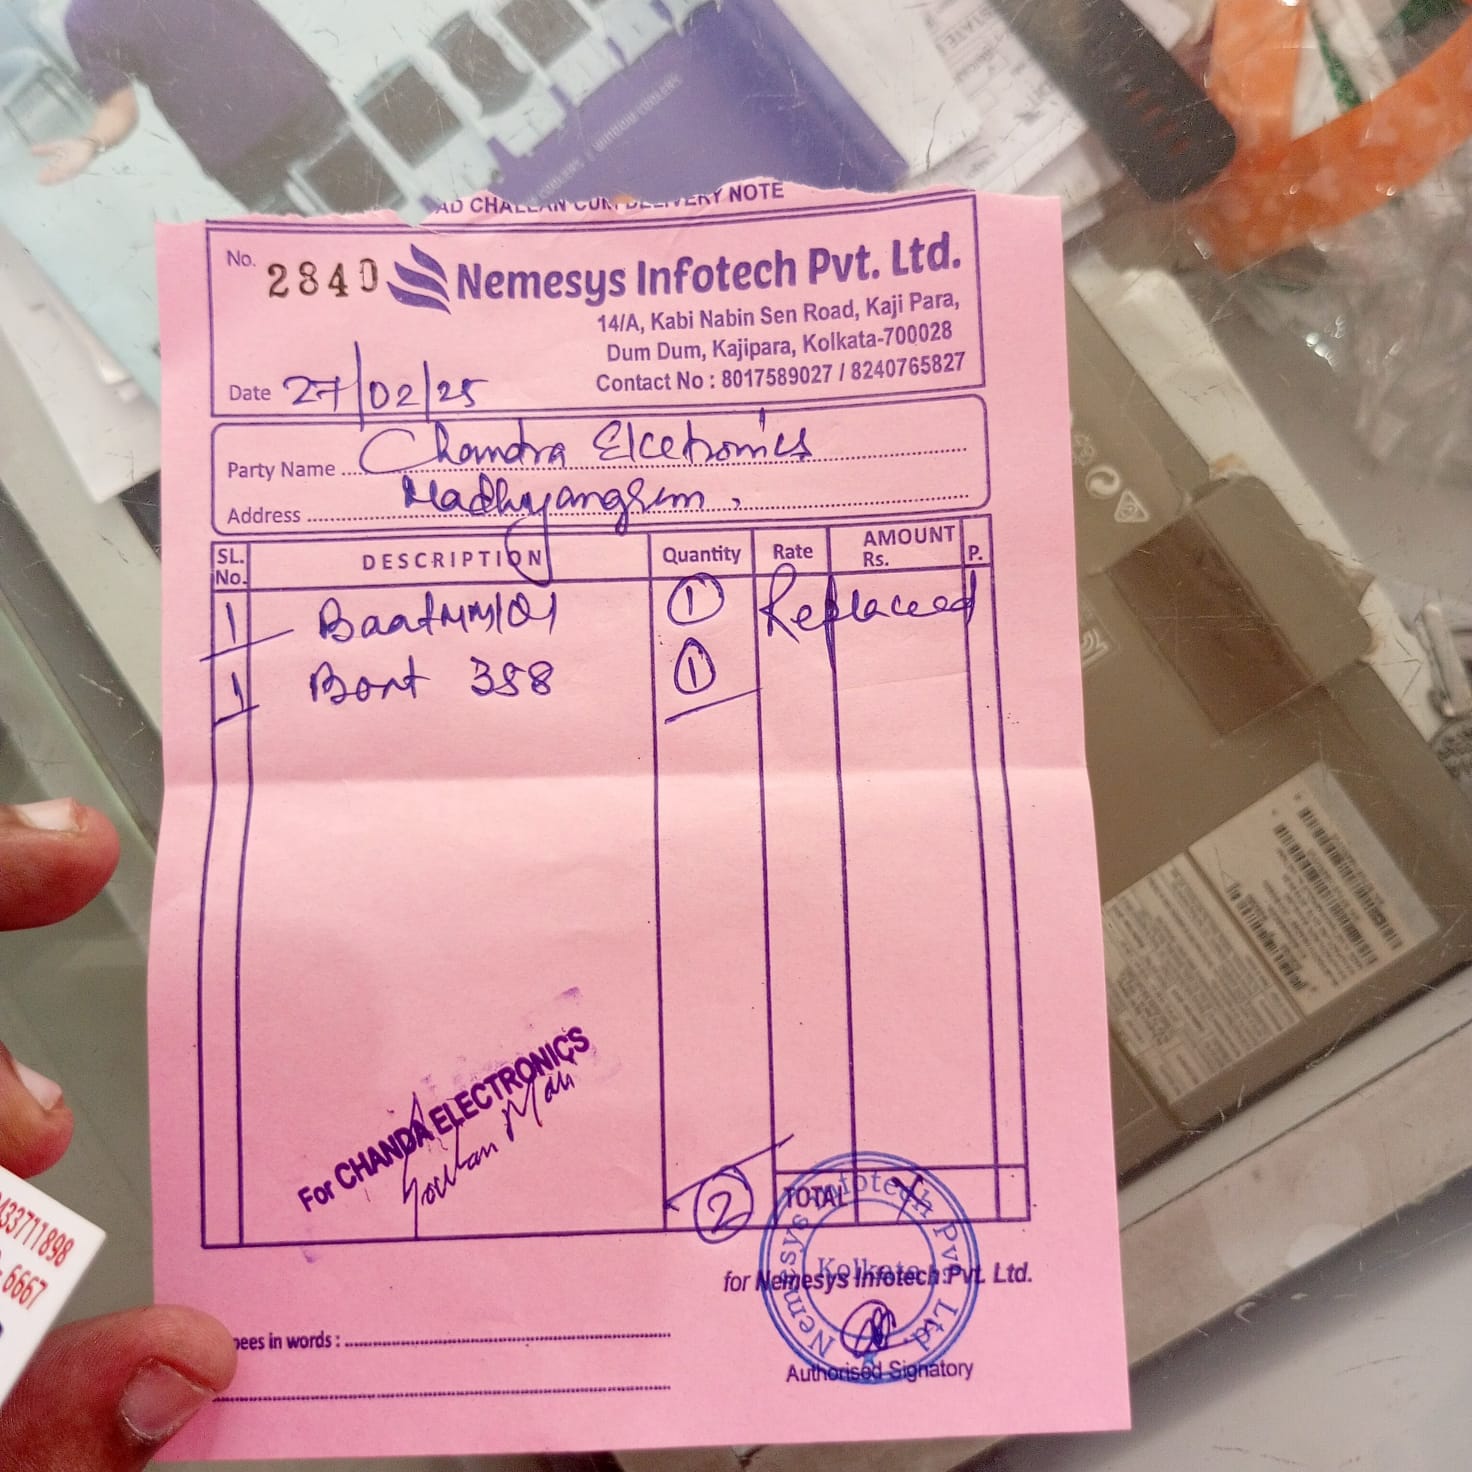 AD CHALLAN CUM DELIVERY NOTE
No. 2840
Nemesys Infotech Pvt. Ltd.
14/A, Kabi Nabin Sen Road, Kaji Para,
Dum Dum, Kajipara, Kolkata-700028
Contact No : 8017589027 / 8240765827
Date 27/02/25
Party Name Chandra Elcetronics
Address Madhyamgram,
SL. No. DESCRIPTION Quantity Rate AMOUNT Rs. P.
1 1 Replaced
1 Boat 358 1
For CHANDA ELECTRONICS
2 TOTAL X
Nemesys Infotech Pvt. Ltd.
Kolkata
for Nemesys Infotech Pvt. Ltd.
pees in words :
Authorised Signatory
433711898
6667
WINDOW COOLERS